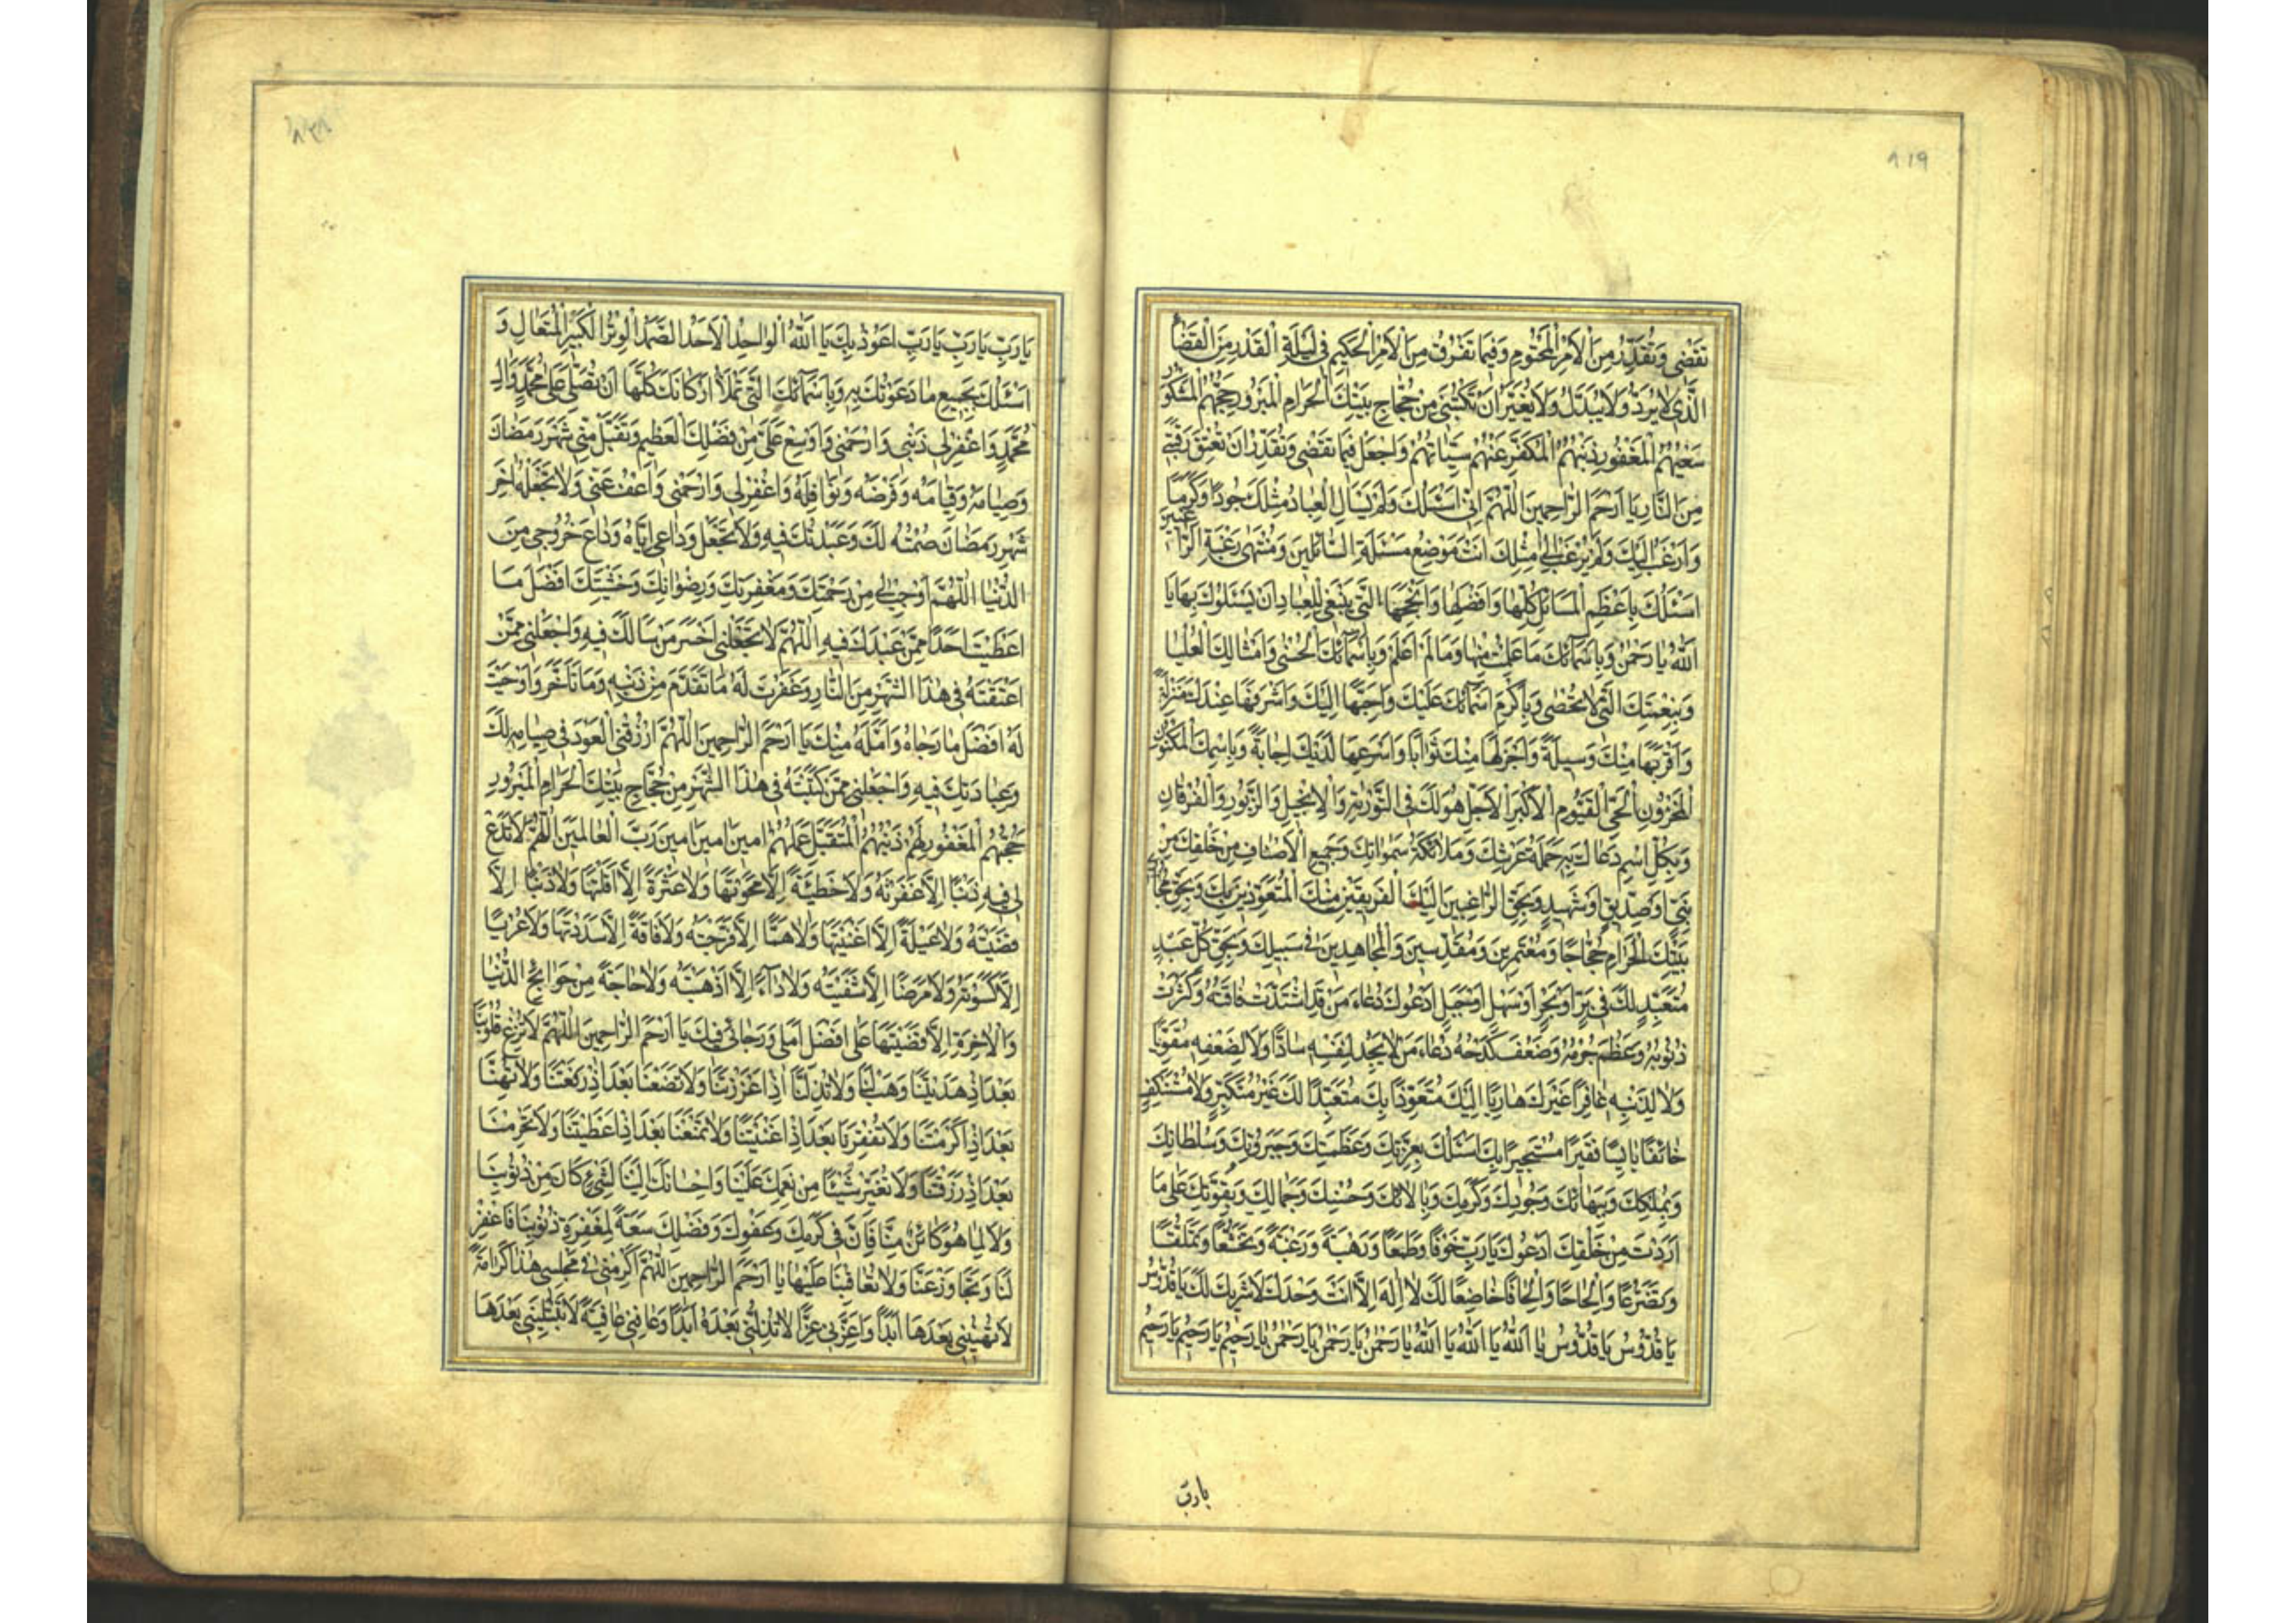 ٨١٩
تَقْضى وَتُقَدِّرُ مِنَ الْاَمْرِ الْمَحْتُومِ وَفيما تَفْرُقُ مِنَ الْاَمْرِ الْحَكيمِ فى لَيْلَةِ الْقَدْرِ مِنَ الْقَضاءِ
الَّذى لا يُرَدُّ وَلا يُبَدَّلُ وَلا يُغَيَّرُ اَنْ تَكْتُبَنى مِنْ حُجّاجِ بَيْتِكَ الْحَرامِ الْمَبْرُورِ حَجُّهُمُ الْمَشْكُورِ
سَعْيُهُمُ الْمَغْفُورِ ذَنْبُهُمُ الْمُكَفَّرِ عَنْهُمْ سَيِّئاتُهُمْ وَاجْعَلْ فيما تَقْضى وَتُقَدِّرُ اَنْ تُعْتِقَ رَقَبَتى
مِنَ النّارِ يا اَرْحَمَ الرّاحِمينَ اَللّهُمَّ اِنّى اَسْئَلُكَ وَلَمْ يَسْاَلِ الْعِبادُ مِثْلَكَ جُودًا وَكَرَمًا
وَاَرْغَبُ اِلَيْكَ وَلَمْ يُرْغَبْ اِلى مِثْلِكَ اَنْتَ مَوْضِعُ مَسْئَلَةِ السّائِلينَ وَمُنْتَهى رَغْبَةِ الرّاغِبينَ
اَسْئَلُكَ بِاَعْظَمِ الْمَسائِلِ كُلِّها وَاَفْضَلِها وَاَنْجَحِهَا الَّتى يَنْبَغى لِلْعِبادِ اَنْ يَسْئَلُوكَ بِها يا
اَللهُ يا رَحْمنُ وَبِاَسْمائِكَ ما عَلِمْتُ مِنْها وَما لَمْ اَعْلَمْ وَبِاَسْمائِكَ الْحُسْنى وَاَمْثالِكَ الْعُلْيا
وَبِنِعْمَتِكَ الَّتى لا تُحْصى وَبِاَكْرَمِ اَسْمائِكَ عَلَيْكَ وَاَحَبِّها اِلَيْكَ وَاَشْرَفِها عِنْدَكَ مَنْزِلَةً
وَاَقْرَبِها مِنْكَ وَسيلَةً وَاَجْزَلِها مِنْكَ ثَوابًا وَاَسْرَعِها لَدَيْكَ اِجابَةً وَبِاسْمِكَ الْمَكْنُونِ
الْمَخْزُونِ الْحَىِّ الْقَيُّومِ الْاَكْبَرِ الْاَجَلِّ هُوَ لَكَ فِى التَّوْريةِ وَالْاِنْجيلِ وَالزَّبُورِ وَالْفُرْقانِ
وَبِكُلِّ اسْمٍ دَعاكَ بِهِ حَمَلَةُ عَرْشِكَ وَمَلائِكَةُ سَمواتِكَ وَجَميعُ الْاَصْنافِ مِنْ خَلْقِكَ مِنْ
نَبِىٍّ اَوْ صِدّيقٍ اَوْ شَهيدٍ وَبِحَقِّ الرّاغِبينَ اِلَيْكَ الْفَرِقينَ مِنْكَ الْمُتَعَوِّذينَ بِكَ وَبِحَقِّ
بَيْتِكَ الْحَرامِ حُجّاجًا وَمُعْتَمِرينَ وَمُقَدِّسينَ وَالْمُجاهِدينَ فى سَبيلِكَ وَبِحَقِّ كُلِّ عَبْدٍ
مُتَعَبِّدٍ لَكَ فى بَرٍّ اَوْ بَحْرٍ اَوْ سَهْلٍ اَوْ جَبَلٍ اَدْعُوكَ دُعاءَ مَنْ قَدِ اشْتَدَّتْ فاقَتُهُ وَكَثُرَتْ
ذُنُوبُهُ وَعَظُمَ جُرْمُهُ وَضَعُفَ كَدْحُهُ دُعاءَ مَنْ لا يَجِدُ لِنَفْسِهِ سادًّا وَلا لِضَعْفِهِ مُقَوِّيًا
وَلا لِذَنْبِهِ غافِرًا غَيْرَكَ هارِبًا اِلَيْكَ مُتَعَوِّذًا بِكَ مُتَعَبِّدًا لَكَ غَيْرَ مُتَكَبِّرٍ وَلا مُسْتَنْكِفٍ
خائِفًا بائِسًا فَقيرًا مُسْتَجيرًا بِكَ اَسْئَلُكَ بِعِزَّتِكَ وَعَظَمَتِكَ وَجَبَرُوتِكَ وَسُلْطانِكَ
وَبِمُلْكِكَ وَبِبَهائِكَ وَجُودِكَ وَكَرَمِكَ وَبِالائِكَ وَحُسْنِكَ وَجَمالِكَ وَبِقُوَّتِكَ عَلى ما
اَرَدْتَ مِنْ خَلْقِكَ اَدْعُوكَ يا رَبِّ خَوْفًا وَطَمَعًا وَرَهْبَةً وَرَغْبَةً وَتَخَشُّعًا وَتَمَلُّقًا
وَتَضَرُّعًا وَاِلْحاحًا وَاِلْحافًا خاضِعًا لَكَ لا اِلهَ اِلّا اَنْتَ وَحْدَكَ لا شَريكَ لَكَ يا قُدُّوسُ
يا قُدُّوسُ يا قُدُّوسُ يا اَللهُ يا اَللهُ يا اَللهُ يا رَحْمنُ يا رَحْمنُ يا رَحْمنُ يا رَحيمُ يا رَحيمُ يا رَحيمُ
يا رب
يا رَبِّ يا رَبِّ يا رَبِّ اَعُوذُ بِكَ يا اَللهُ الْواحِدُ الْاَحَدُ الصَّمَدُ الْوِتْرُ الْكَبيرُ الْمُتَعالِ وَ
اَسْئَلُكَ بِجَميعِ ما دَعَوْتُكَ بِهِ وَبِاَسْمائِكَ الَّتى تَمْلَأُ اَرْكانَكَ كُلَّها اَنْ تُصَلِّىَ عَلى مُحَمَّدٍ وَالِ
مُحَمَّدٍ وَاغْفِرْ لى ذَنْبى وَارْحَمْنى وَاَوْسِعْ عَلَىَّ مِنْ فَضْلِكَ الْعَظيمِ وَتَقَبَّلْ مِنّى شَهْرَ رَمَضانَ
وَصِيامَهُ وَقِيامَهُ وَفَرْضَهُ وَنَوافِلَهُ وَاغْفِرْ لى وَارْحَمْنى وَاعْفُ عَنّى وَلا تَجْعَلْهُ اخِرَ
شَهْرِ رَمَضانَ صُمْتُهُ لَكَ وَعَبَدْتُكَ فيهِ وَلا تَجْعَلْ وَداعى اِيّاهُ وَداعَ خُرُوجى مِنَ
الدُّنْيا اَللّهُمَّ اَوْجِبْ لى مِنْ رَحْمَتِكَ وَمَغْفِرَتِكَ وَرِضْوانِكَ وَخَشْيَتِكَ اَفْضَلَ ما
اَعْطَيْتَ اَحَدًا مِمَّنْ عَبَدَكَ فيهِ اَللّهُمَّ لا تَجْعَلْنى اَخْسَرَ مَنْ سَاَلَكَ فيهِ وَاجْعَلْنى مِمَّنْ
اَعْتَقْتَهُ فى هذَا الشَّهْرِ مِنَ النّارِ وَغَفَرْتَ لَهُ ما تَقَدَّمَ مِنْ ذَنْبِهِ وَما تَاَخَّرَ وَاَوْجَبْتَ
لَهُ اَفْضَلَ ما رَجاهُ وَاَمَّلَهُ مِنْكَ يا اَرْحَمَ الرّاحِمينَ اَللّهُمَّ ارْزُقْنِى الْعَوْدَ فى صِيامِهِ لَكَ
وَعِبادَتِكَ فيهِ وَاجْعَلْنى مِمَّنْ كَتَبْتَهُ فى هذَا الشَّهْرِ مِنْ حُجّاجِ بَيْتِكَ الْحَرامِ الْمَبْرُورِ
حَجُّهُمُ الْمَغْفُورِ لَهُمْ ذَنْبُهُمُ الْمُتَقَبَّلِ عَمَلُهُمْ امينَ امينَ امينَ رَبَّ الْعالَمينَ اَللّهُمَّ لا تَدَعْ
لى فيهِ ذَنْبًا اِلّا غَفَرْتَهُ وَلا خَطيئَةً اِلّا مَحَوْتَها وَلا عَثْرَةً اِلّا اَقَلْتَها وَلا دَيْنًا اِلّا
قَضَيْتَهُ وَلا عَيْلَةً اِلّا اَغْنَيْتَها وَلا هَمًّا اِلّا فَرَّجْتَهُ وَلا فاقَةً اِلّا سَدَدْتَها وَلا عُرْيًا
اِلّا كَسَوْتَهُ وَلا مَرَضًا اِلّا شَفَيْتَهُ وَلا داءً اِلّا اَذْهَبْتَهُ وَلا حاجَةً مِنْ حَوائِجِ الدُّنْيا
وَالْاخِرَةِ اِلّا قَضَيْتَها عَلى اَفْضَلِ اَمَلى وَرَجائى فيكَ يا اَرْحَمَ الرّاحِمينَ اَللّهُمَّ لا تُزِغْ قُلُوبَنا
بَعْدَ اِذْ هَدَيْتَنا وَهَبْ لَنا وَلا تُذِلَّنا اِذْ اَعْزَزْتَنا وَلا تَضَعْنا بَعْدَ اِذْ رَفَعْتَنا وَلا تُهِنّا
بَعْدَ اِذْ اَكْرَمْتَنا وَلا تُفْقِرْنا بَعْدَ اِذْ اَغْنَيْتَنا وَلا تَمْنَعْنا بَعْدَ اِذْ اَعْطَيْتَنا وَلا تَحْرِمْنا
بَعْدَ اِذْ رَزَقْتَنا وَلا تُغَيِّرْ شَيْئًا مِنْ نِعَمِكَ عَلَيْنا وَاِحْسانِكَ اِلَيْنا لِشَىْءٍ كانَ مِنْ ذُنُوبِنا
وَلا لِما هُوَ كائِنٌ مِنّا فَاِنَّ فى كَرَمِكَ وَعَفْوِكَ وَفَضْلِكَ سَعَةً لِمَغْفِرَةِ ذُنُوبِنا فَاغْفِرْ
لَنا وَتَجاوَزْ عَنّا وَلا تُعاقِبْنا عَلَيْها يا اَرْحَمَ الرّاحِمينَ اَللّهُمَّ اَكْرِمْنى فى مَجْلِسى هذا كَرامَةً
لا تُهينُنى بَعْدَها اَبَدًا وَاَعِزَّنى عِزًّا لا تُذِلُّنى بَعْدَهُ اَبَدًا وَعافِنى عافِيَةً لا تَبْتَلينى بَعْدَها